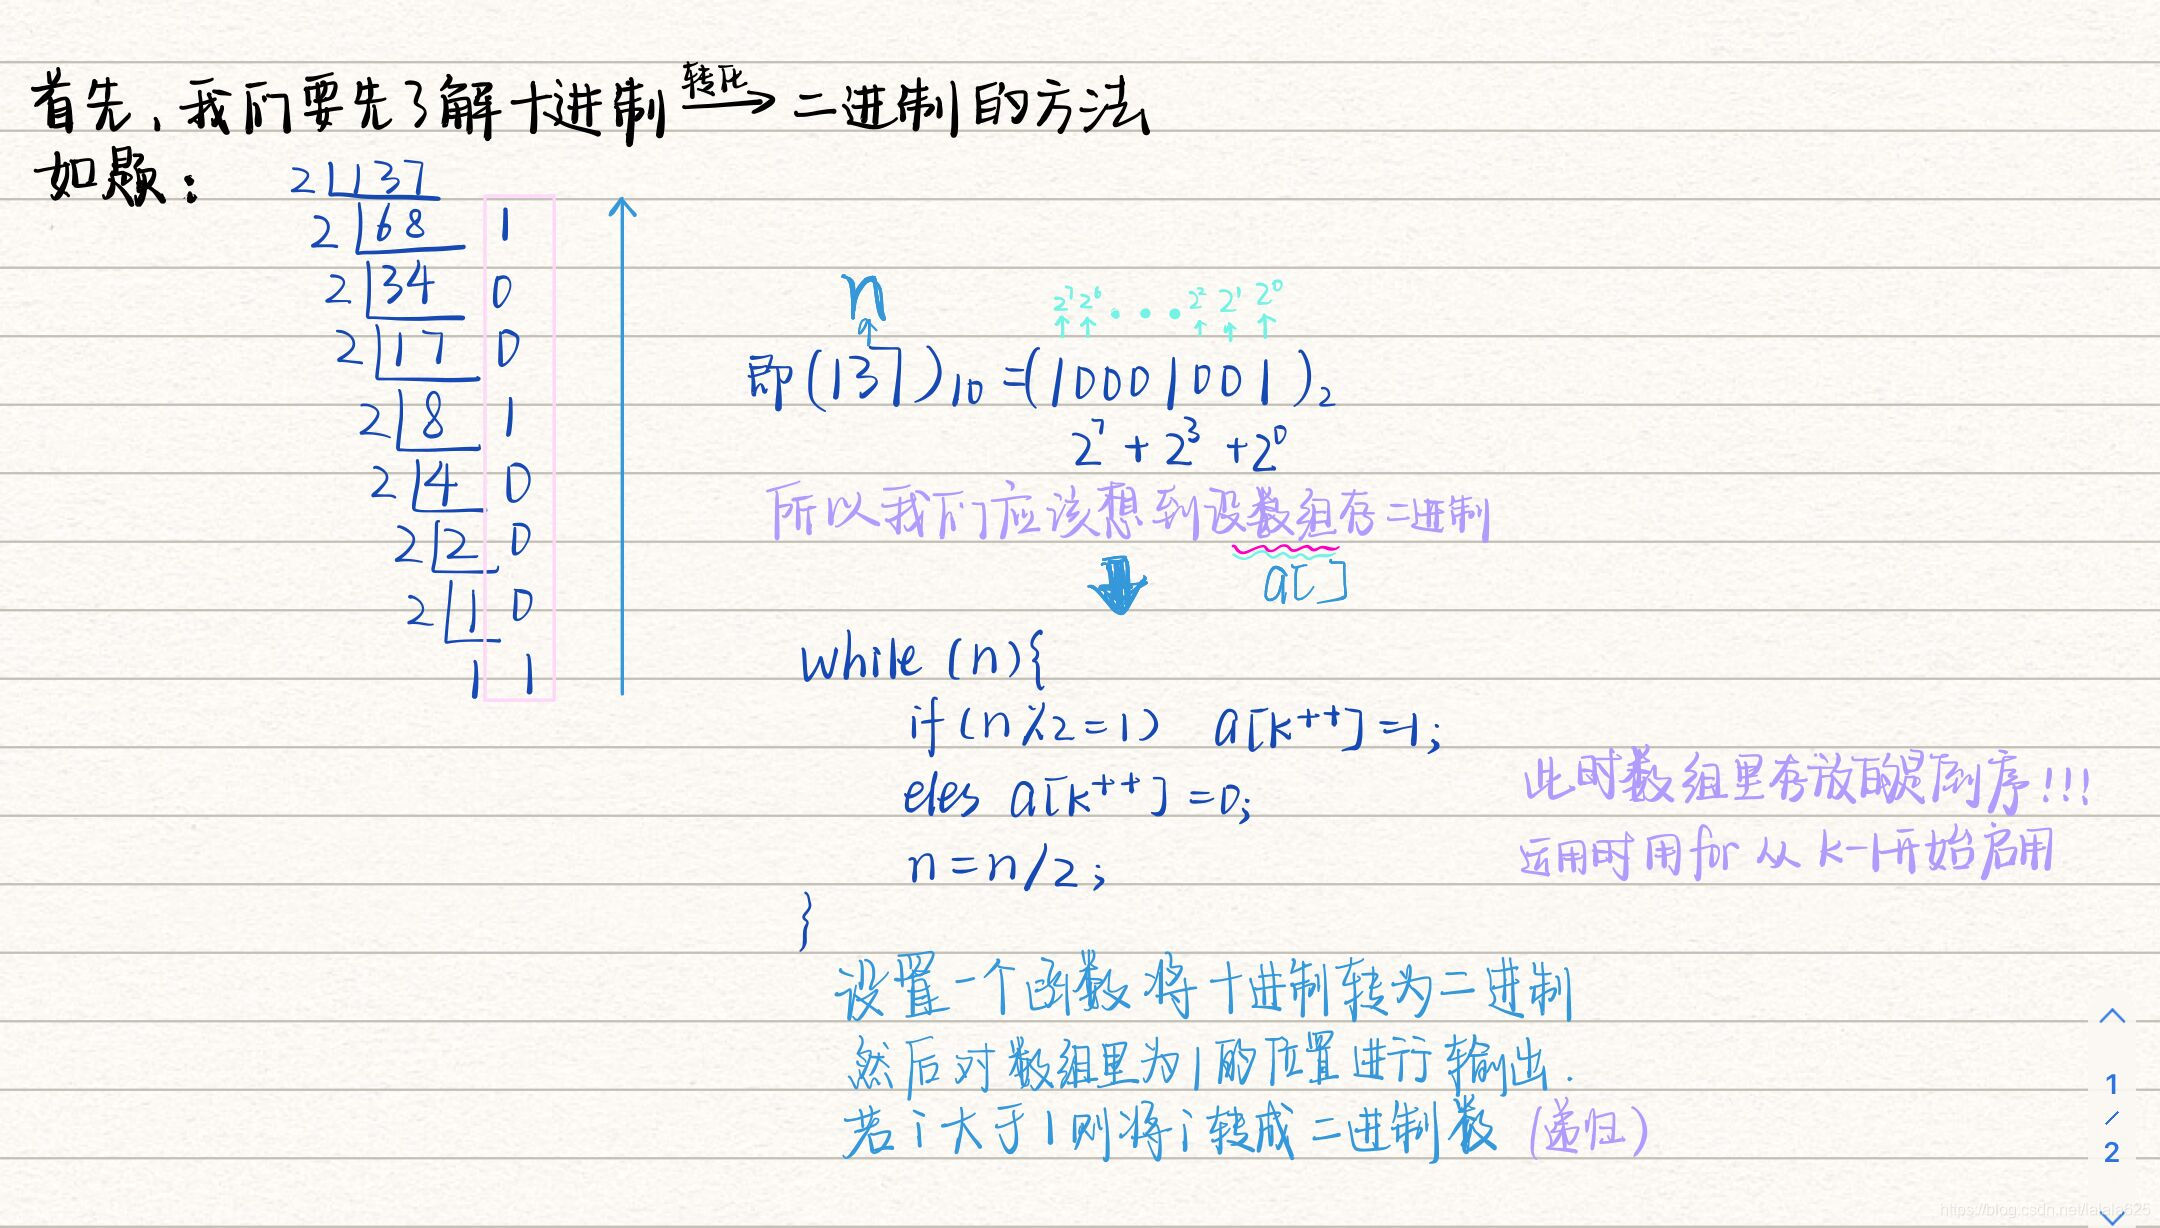 首先,我们要先了解十进制 转化→ 二进制的方法
如题:
2 137
2 68 1
2 34 0
2 17 0
2 8 1
2 4 0
2 2 0
2 1 0
1 1
n
2⁷ 2⁶ · · · 2² 2¹ 2⁰
即(137)₁₀=(10001001)₂
2⁷+2³+2⁰
所以我们应该想到设数组存二进制
a[]
while (n){
if(n%2=1) a[k++]=1;
eles a[k++]=0;
n=n/2;
}
此时数组里存放的是倒序!!!
运用时用for从k-1开始启用
设置一个函数将十进制转为二进制
然后对数组里为1的位置进行输出.
若i大于1则将i转成二进制数(递归)
1
/
2
https://blog.csdn.net/lalala625